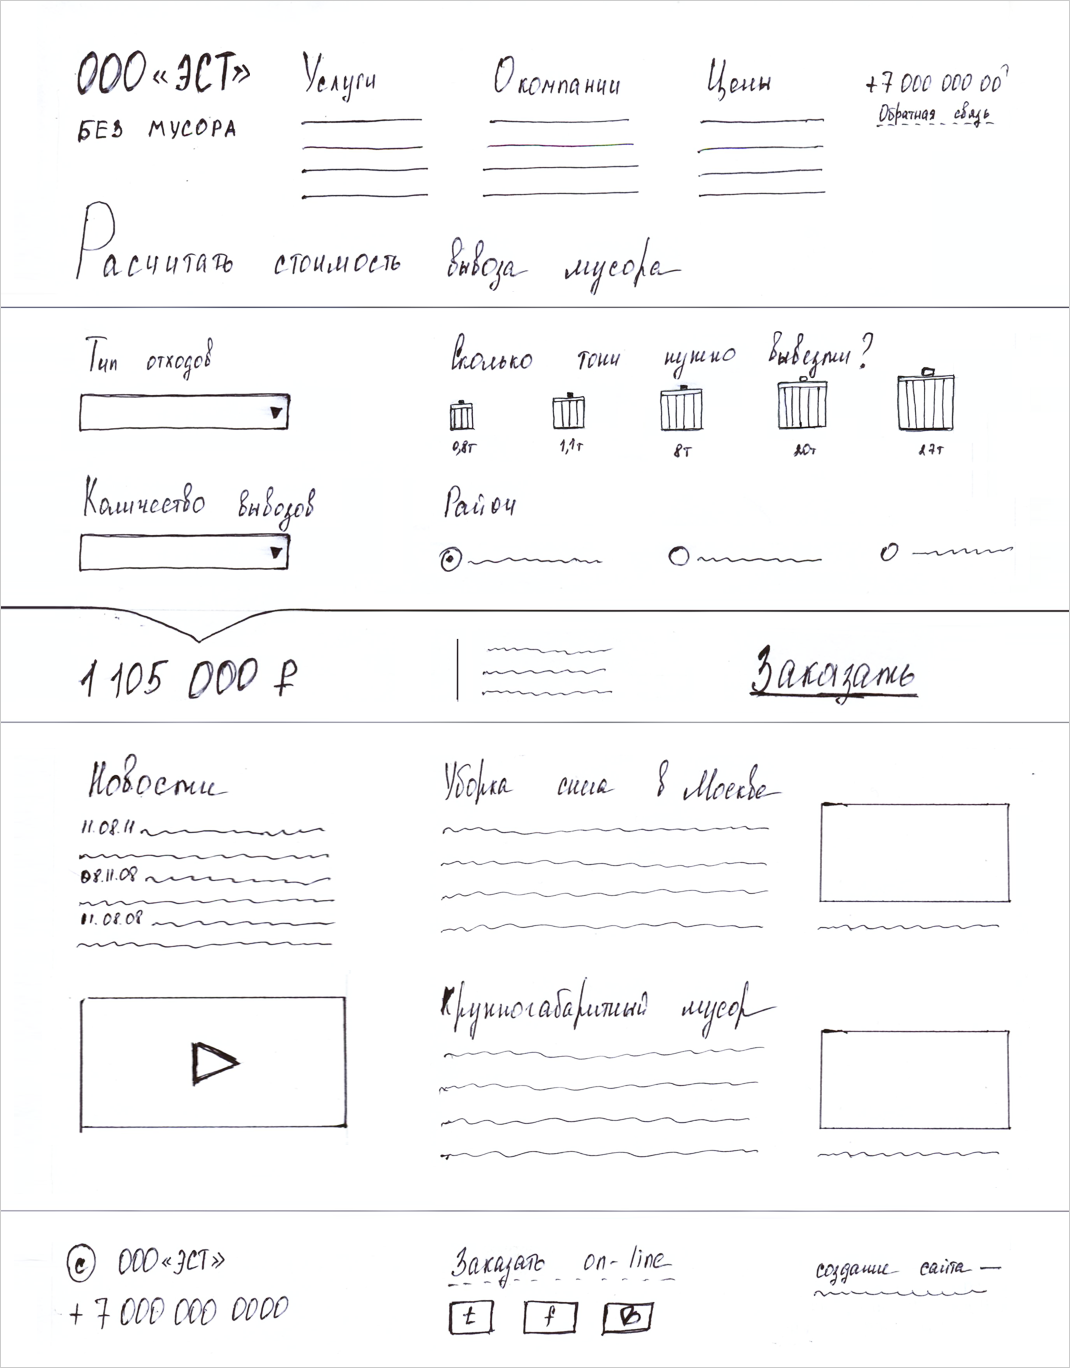 ООО «ЭСТ»
БЕЗ МУСОРА
Услуги
О компании
Цены
+7 000 000 00
Обратная связь
Расчитать стоимость вывоза мусора
Тип отходов
Сколько тонн нужно вывезти?
0,8т 1,1т 8т 20т 27т
Количество вывозов
Район
1 105 000 ₽
Заказать
Новости
11.08.11
08.11.08
11.08.08
Уборка снега в Москве
Крупногабаритный мусор
© ООО «ЭСТ»
+ 7 000 000 0000
Заказать on-line
t f В
создание сайта —